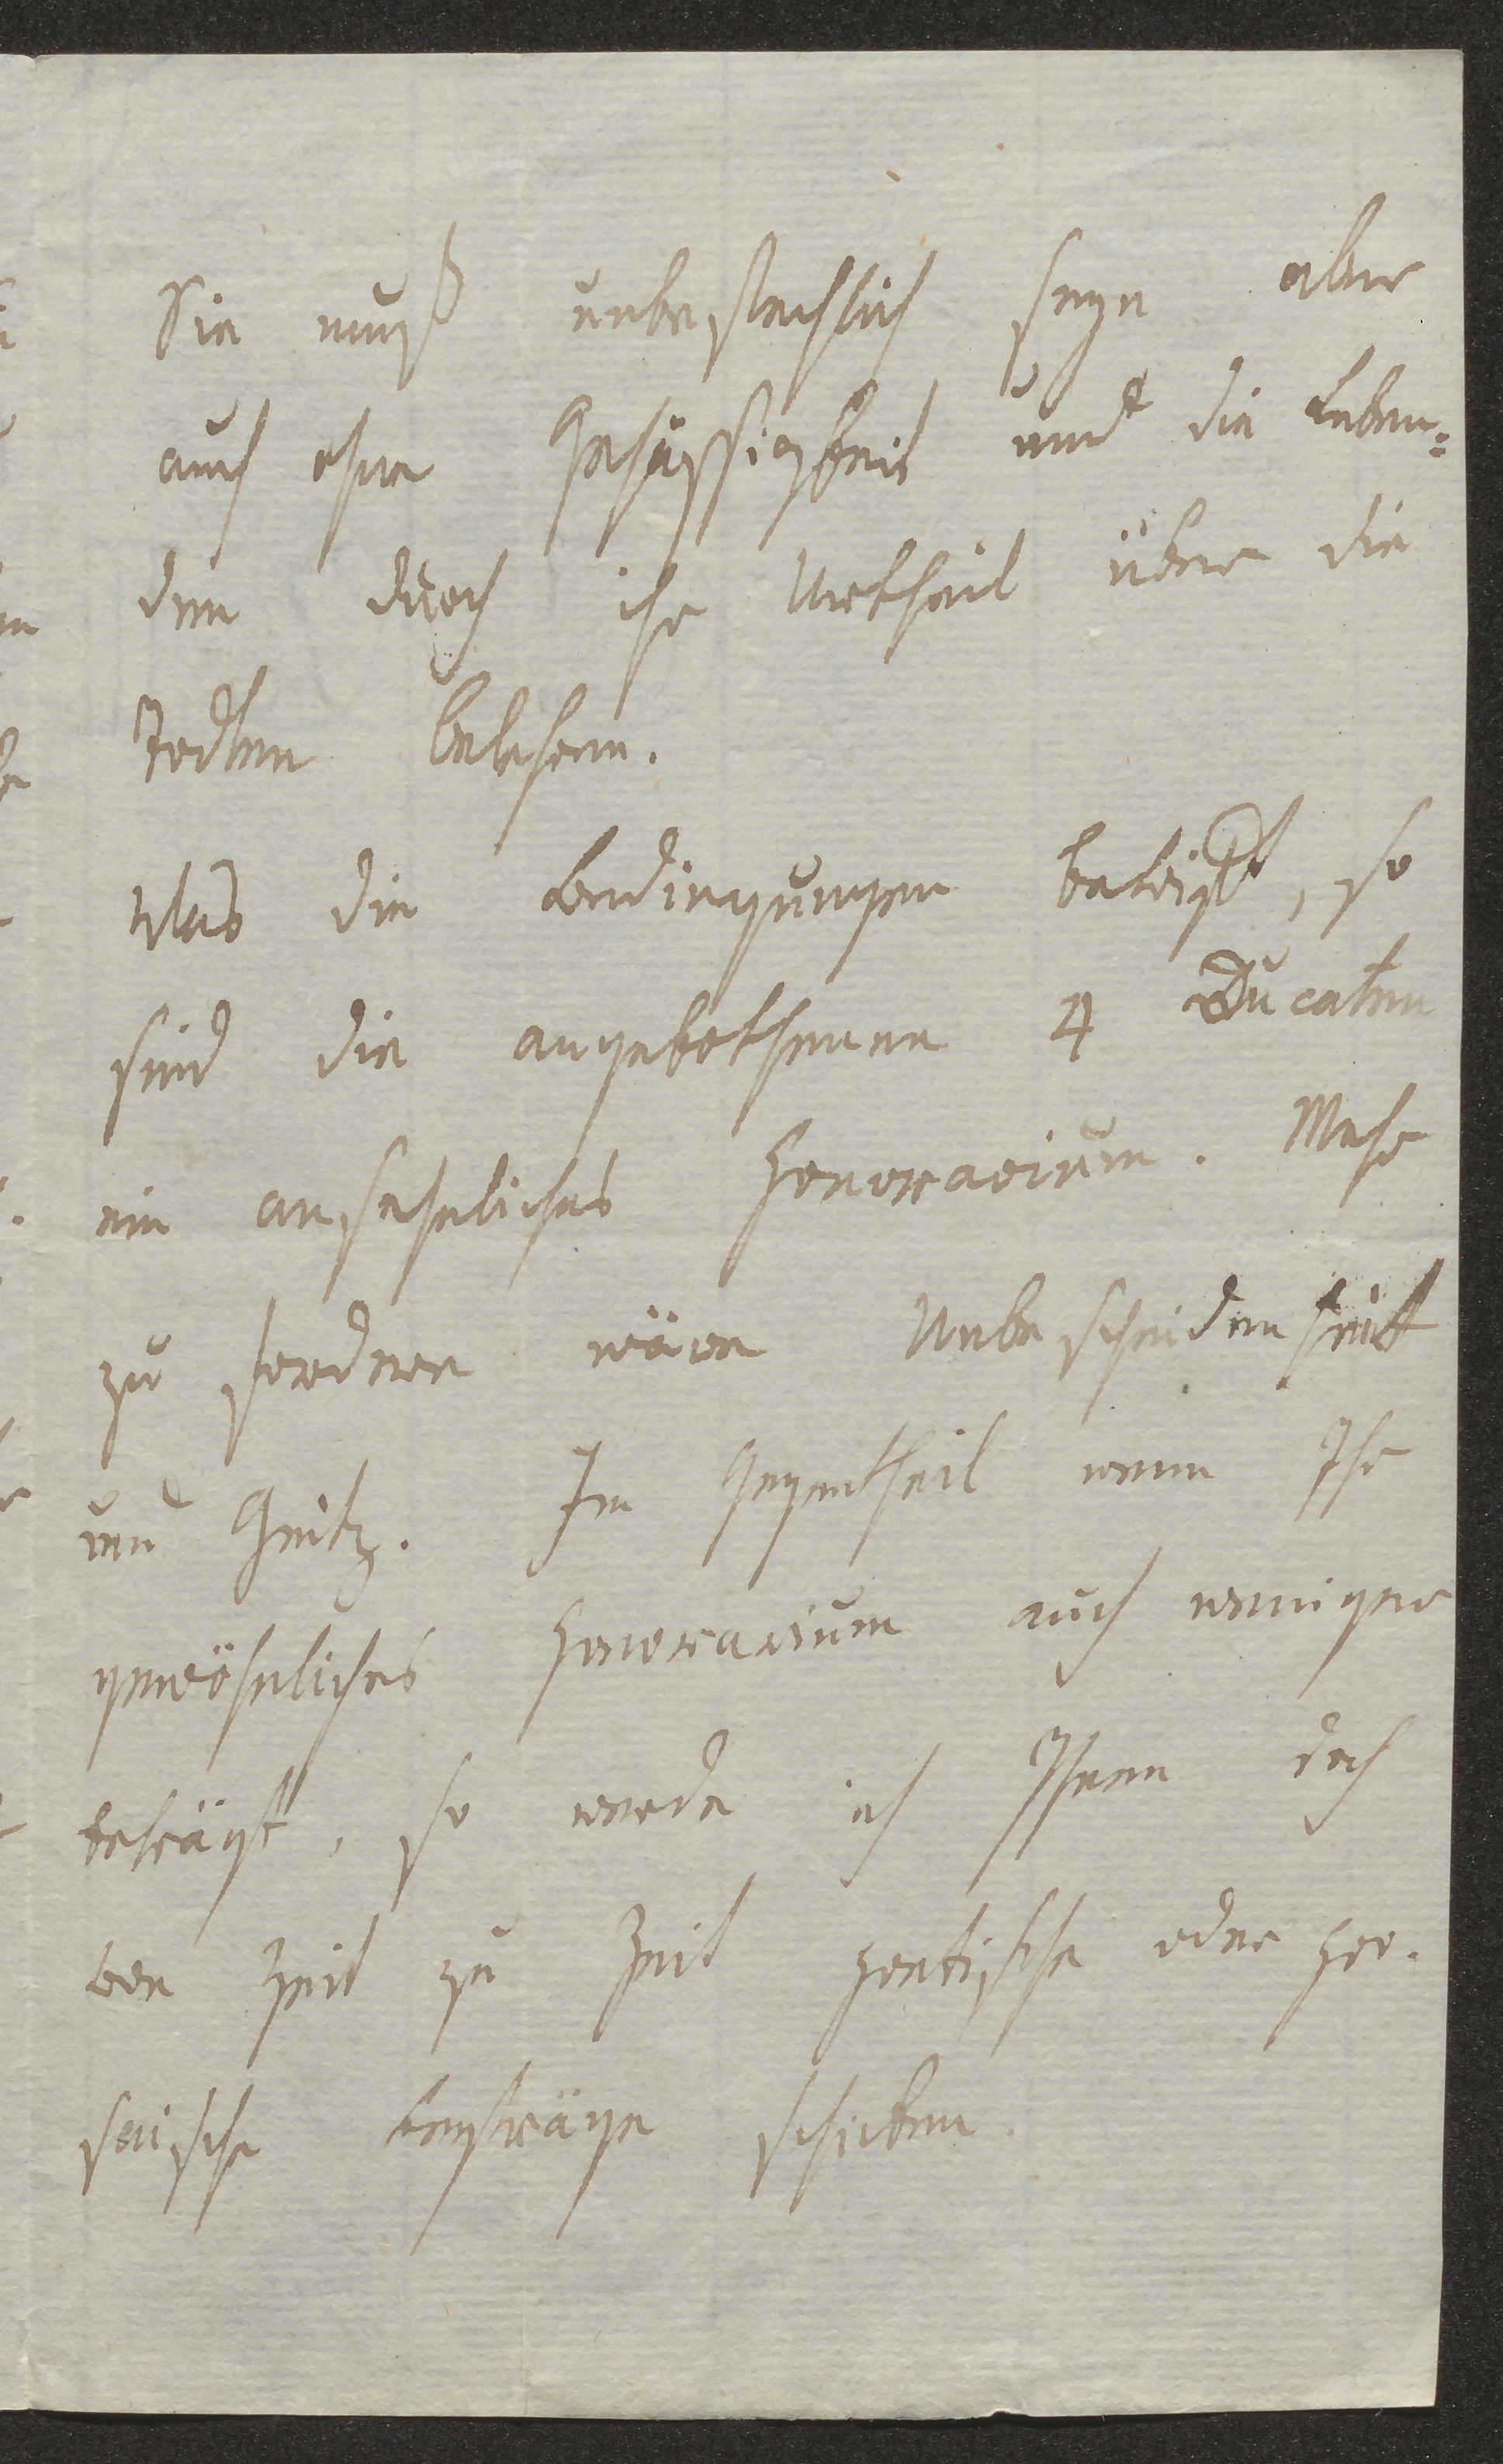 Sie muß unbestechlich seyn aber
auch ohne Gehässigkeit und die Leben-
den durch ihr Urtheil über die
Todten belehren.
Was die Bedingungen betrift, so
sind die angebothenen 4 Ducaten
ein ansehnliches Honorarium. Mehr
zu fordern wäre Unbescheidenheit
und Geitz. Im Gegentheil wenn Ihr
gewöhnliches Honorarium auch weniger
beträgt, so werde ich Ihnen doch
von Zeit zu Zeit poetische oder pro-
saische Beyträge schicken.